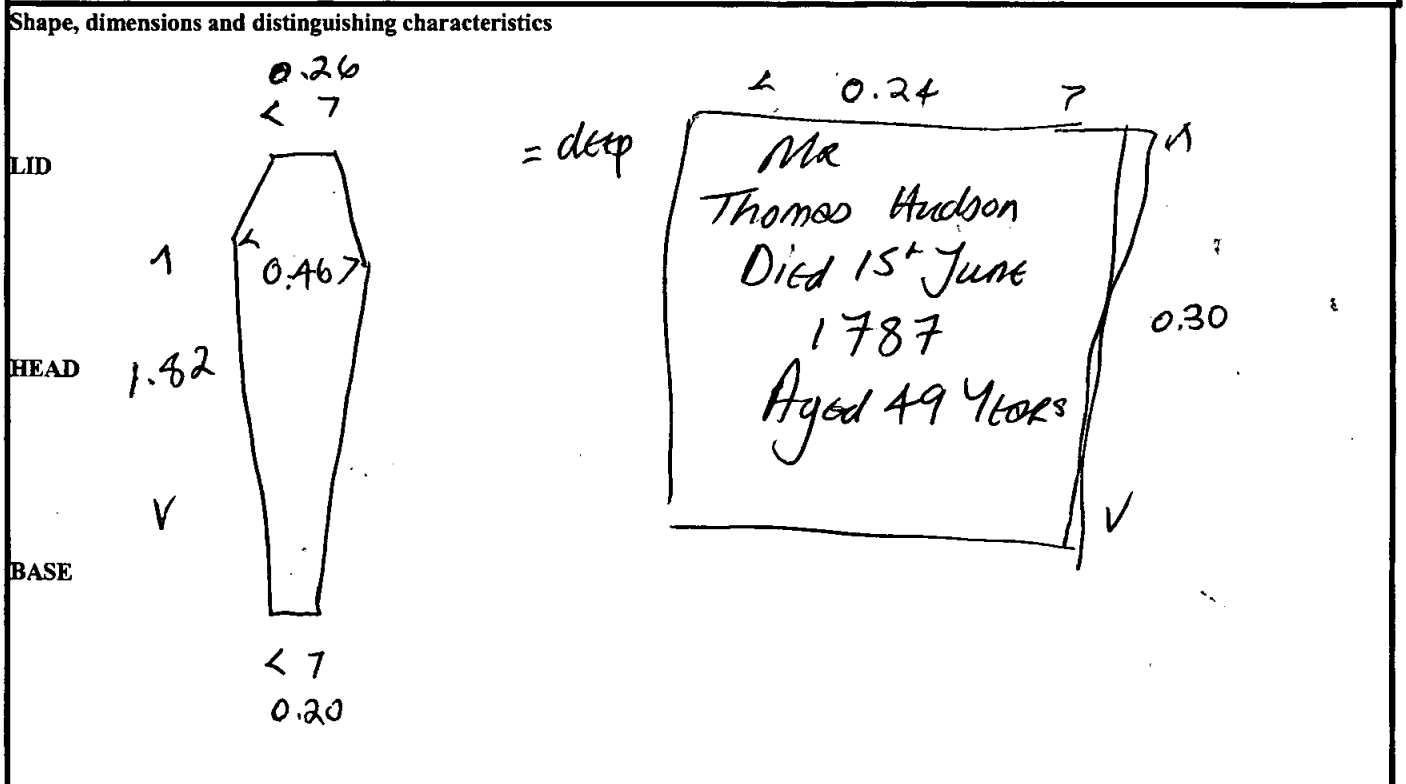 Shape, dimensions and distinguishing characteristics
0.26
< >
LID
0.46
HEAD
1.82
BASE
< >
0.20
= deep
< 0.24 >
Mr
Thomas Hudson
Died 15t June
1787
Aged 49 Years
0.30